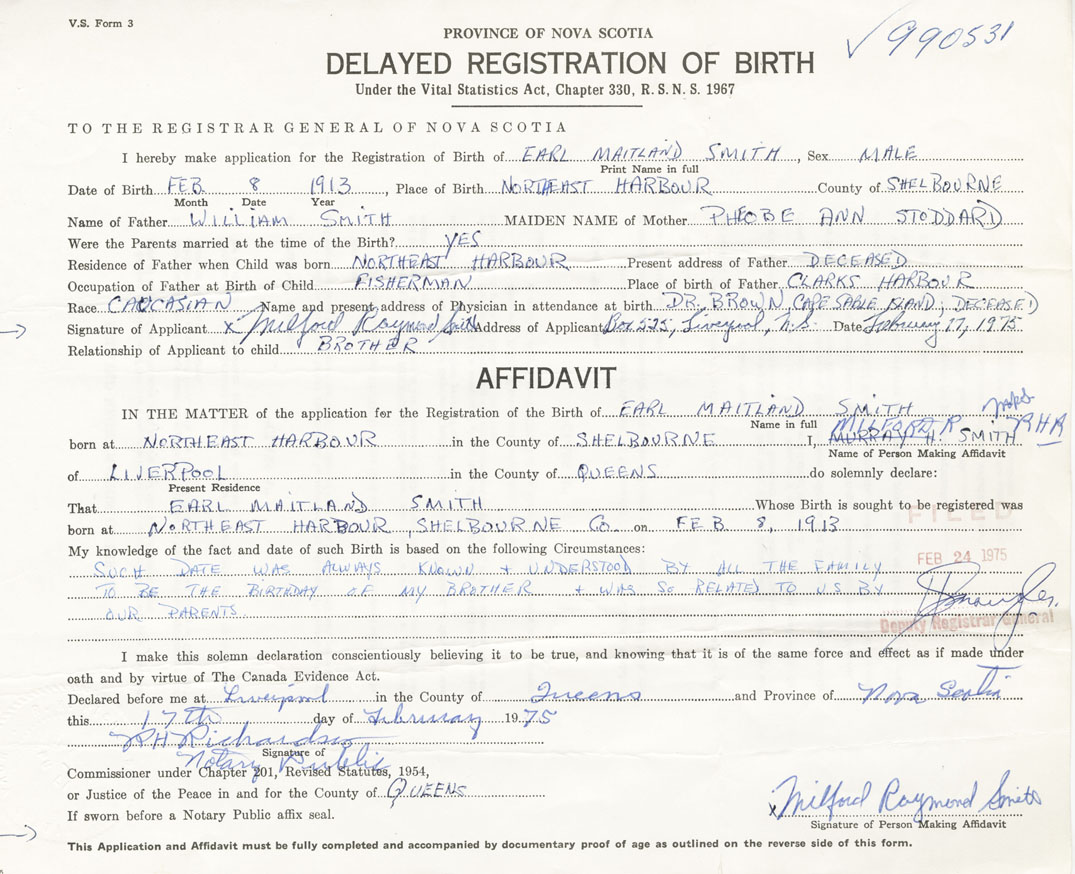 V.S. Form 3
PROVINCE OF NOVA SCOTIA
✓990531
DELAYED REGISTRATION OF BIRTH
Under the Vital Statistics Act, Chapter 330, R. S. N. S. 1967
TO THE REGISTRAR GENERAL OF NOVA SCOTIA
I hereby make application for the Registration of Birth of EARL MAITLAND SMITH, Sex MALE
Print Name in full
Date of Birth FEB. 8 1913, Place of Birth NORTHEAST HARBOUR County of SHELBOURNE
Month Date Year
Name of Father WILLIAM SMITH MAIDEN NAME of Mother PHEOBE ANN STODDARD
Were the Parents married at the time of the Birth? YES
Residence of Father when Child was born NORTHEAST HARBOUR Present address of Father DECEASED
Occupation of Father at Birth of Child FISHERMAN Place of birth of Father CLARKS HARBOUR
Race CAUCASIAN Name and present address of Physician in attendance at birth DR. BROWN, CAPE SABLE ISLAND; DECEASED)
Signature of Applicant x Milford Raymond Smith Address of Applicant Box 525, Liverpool, N.S. Date February 17, 1975
Relationship of Applicant to child BROTHER
AFFIDAVIT
IN THE MATTER of the application for the Registration of the Birth of EARL MAITLAND SMITH
Name in full MILFORD R RHR
born at NORTHEAST HARBOUR in the County of SHELBOURNE I, MURRAY H. SMITH
Name of Person Making Affidavit
of LIVERPOOL in the County of QUEENS do solemnly declare:
Present Residence
That EARL MAITLAND SMITH Whose Birth is sought to be registered was
born at NORTHEAST HARBOUR, SHELBOURNE Co. on FEB 8, 1913
FILED
My knowledge of the fact and date of such Birth is based on the following Circumstances:
FEB 24 1975
SUCH DATE WAS ALWAYS KNOWN + UNDERSTOOD BY ALL THE FAMILY
TO BE THE BIRTHDAY OF MY BROTHER + WAS SO RELATED TO US BY
OUR PARENTS
Deputy Registrar General
I make this solemn declaration conscientiously believing it to be true, and knowing that it is of the same force and effect as if made under
oath and by virtue of The Canada Evidence Act.
Declared before me at Liverpool in the County of Queens and Province of Nova Scotia
this 17th day of February 1975
RH Richardson
Signature of
Notary Public
Commissioner under Chapter 201, Revised Statutes, 1954,
or Justice of the Peace in and for the County of QUEENS
If sworn before a Notary Public affix seal.
x Milford Raymond Smith
Signature of Person Making Affidavit
This Application and Affidavit must be fully completed and accompanied by documentary proof of age as outlined on the reverse side of this form.